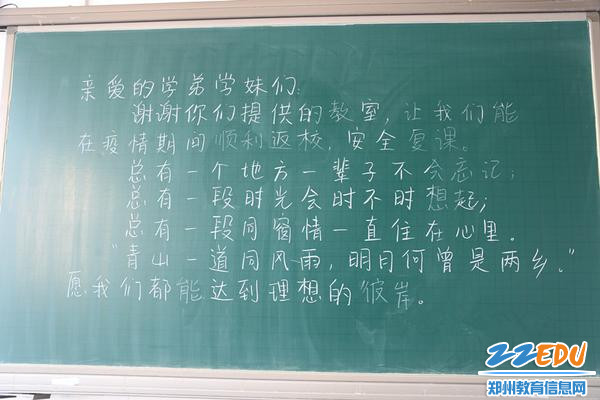 亲爱的学弟学妹们：
谢谢你们提供的教室，让我们能
在疫情期间顺利返校，安全复课。
总有一个地方一辈子不会忘记；
总有一段时光会时不时想起；
总有一段同窗情一直住在心里。
“青山一道同风雨，明月何曾是两乡。”
愿我们都能达到理想的彼岸。
ZZEDU
郑州教育信息网